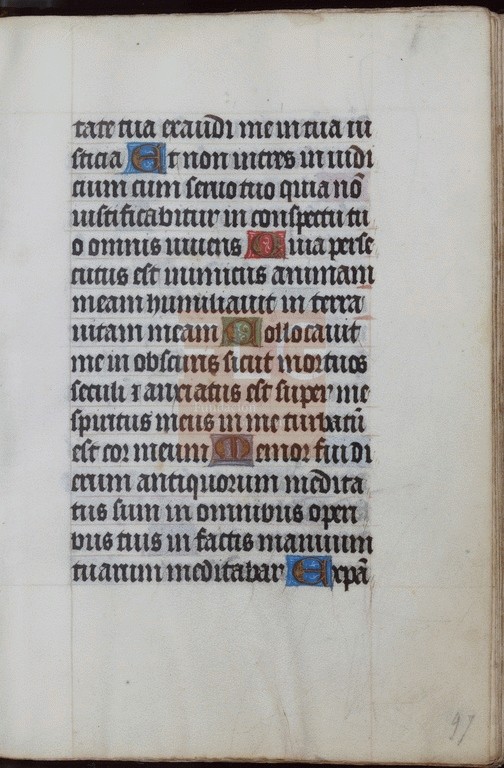 tate tua exaudi me in tua iu
sticia Et non intres in iudi
cium cum seruo tuo quia nō
iustificabitur in conspectu tu
o omnis uiuens Quia perse
cutus est inimicus animam
meam humiliauit in terra
uitam meam Collocauit
me in obscuris sicut mortuos
seculi ⁊ anxiatus est super me
spiritus meus in me turbatū
est cor meum Memor fui di
erum antiquorum medita
tus sum in omnibus operi
bus tuis in factis manuum
tuarum meditabar Expā
97